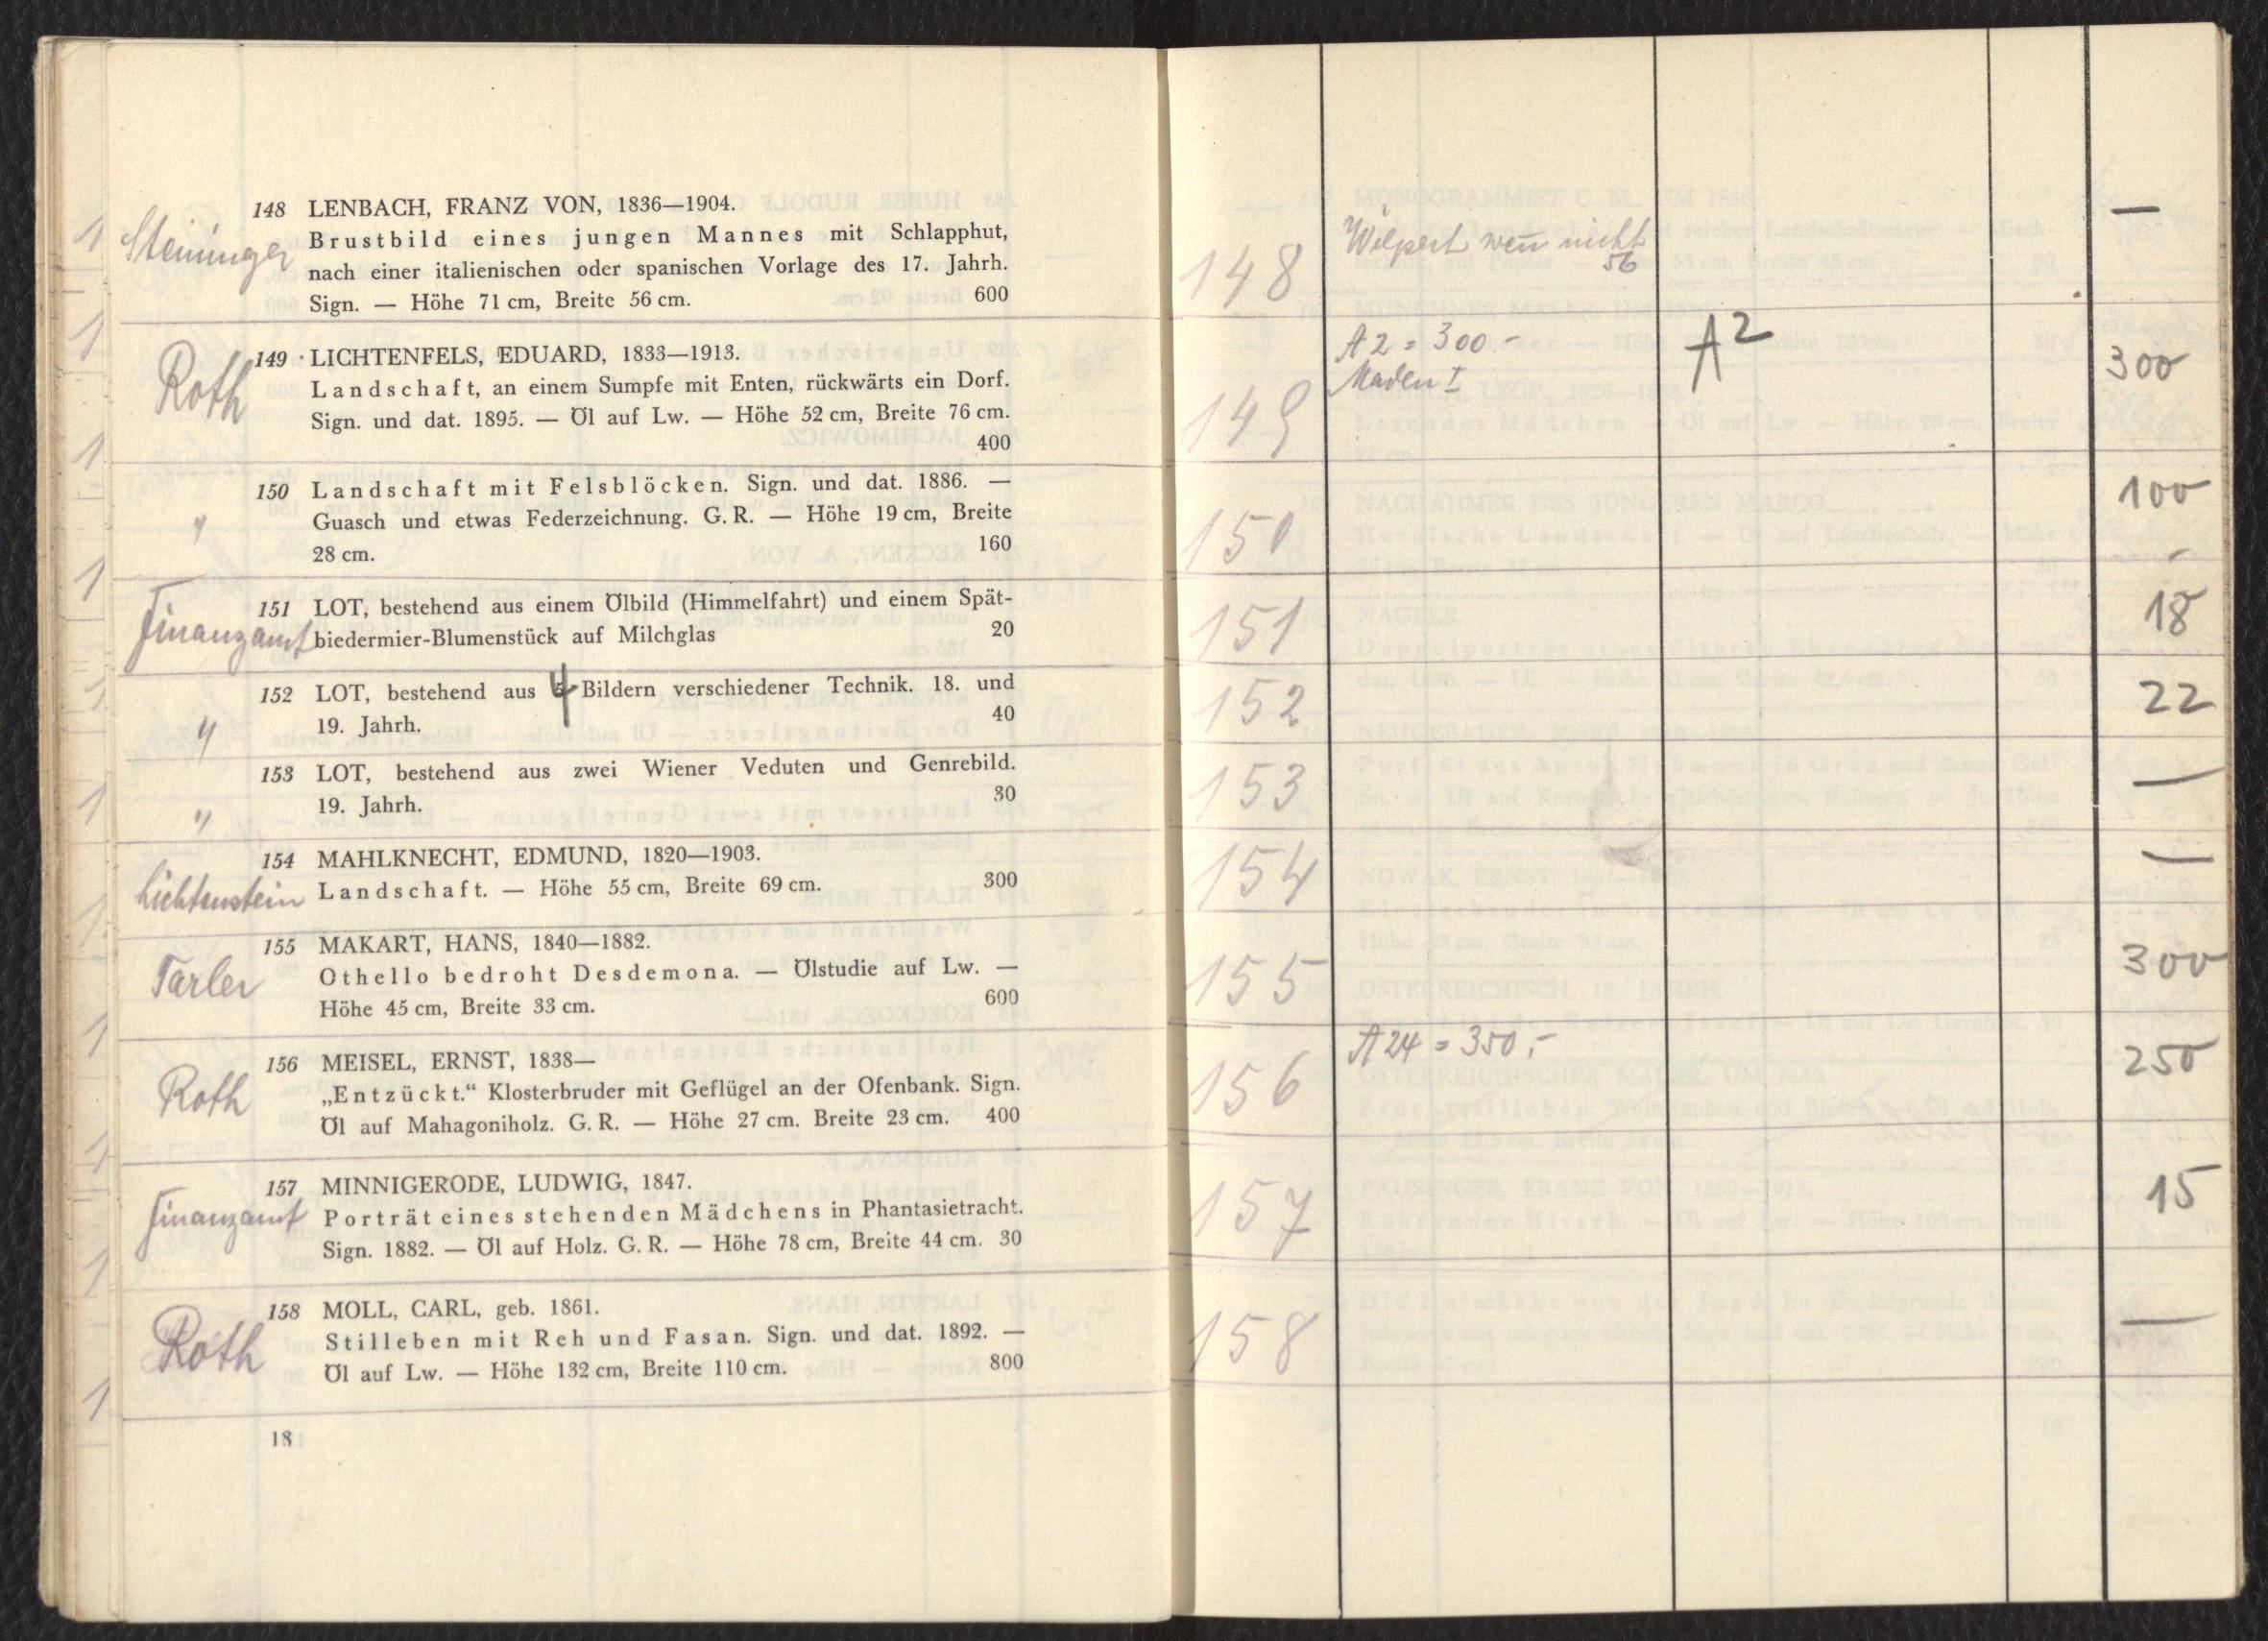 148 LENBACH, FRANZ VON, 1836—1904.
Steininger
Brustbild eines jungen Mannes mit Schlapphut,
nach einer italienischen oder spanischen Vorlage des 17. Jahrh.
Sign. — Höhe 71 cm, Breite 56 cm. 600
149 LICHTENFELS, EDUARD, 1833—1913.
Roth
Landschaft, an einem Sumpfe mit Enten, rückwärts ein Dorf.
Sign. und dat. 1895. — Öl auf Lw. — Höhe 52 cm, Breite 76 cm.
400
150 Landschaft mit Felsblöcken. Sign. und dat. 1886. —
" Guasch und etwas Federzeichnung. G. R. — Höhe 19 cm, Breite
28 cm. 160
151 LOT, bestehend aus einem Ölbild (Himmelfahrt) und einem Spät-
Finanzamt biedermier-Blumenstück auf Milchglas 20
152 LOT, bestehend aus 4 Bildern verschiedener Technik. 18. und
" 19. Jahrh. 40
153 LOT, bestehend aus zwei Wiener Veduten und Genrebild.
" 19. Jahrh. 30
154 MAHLKNECHT, EDMUND, 1820—1903.
Lichtenstein Landschaft. — Höhe 55 cm, Breite 69 cm. 300
155 MAKART, HANS, 1840—1882.
Tarler Othello bedroht Desdemona. — Ölstudie auf Lw. —
Höhe 45 cm, Breite 33 cm. 600
156 MEISEL, ERNST, 1838—
Roth „Entzückt.“ Klosterbruder mit Geflügel an der Ofenbank. Sign.
Öl auf Mahagoniholz. G. R. — Höhe 27 cm. Breite 23 cm. 400
157 MINNIGERODE, LUDWIG, 1847.
Finanzamt Porträt eines stehenden Mädchens in Phantasietracht.
Sign. 1882. — Öl auf Holz. G. R. — Höhe 78 cm, Breite 44 cm. 30
158 MOLL, CARL, geb. 1861.
Roth Stilleben mit Reh und Fasan. Sign. und dat. 1892. —
Öl auf Lw. — Höhe 132 cm, Breite 110 cm. 800
18
1
1
1
1
1
1
1
1
1
1
1
1
148 Wilpert wenn nicht —
56
149 A 2 = 300 – A2 300
150 100 –
151 18
152 22
153 —
154 —
155 300
156 A 24 = 350,– 250
157 15
158 —